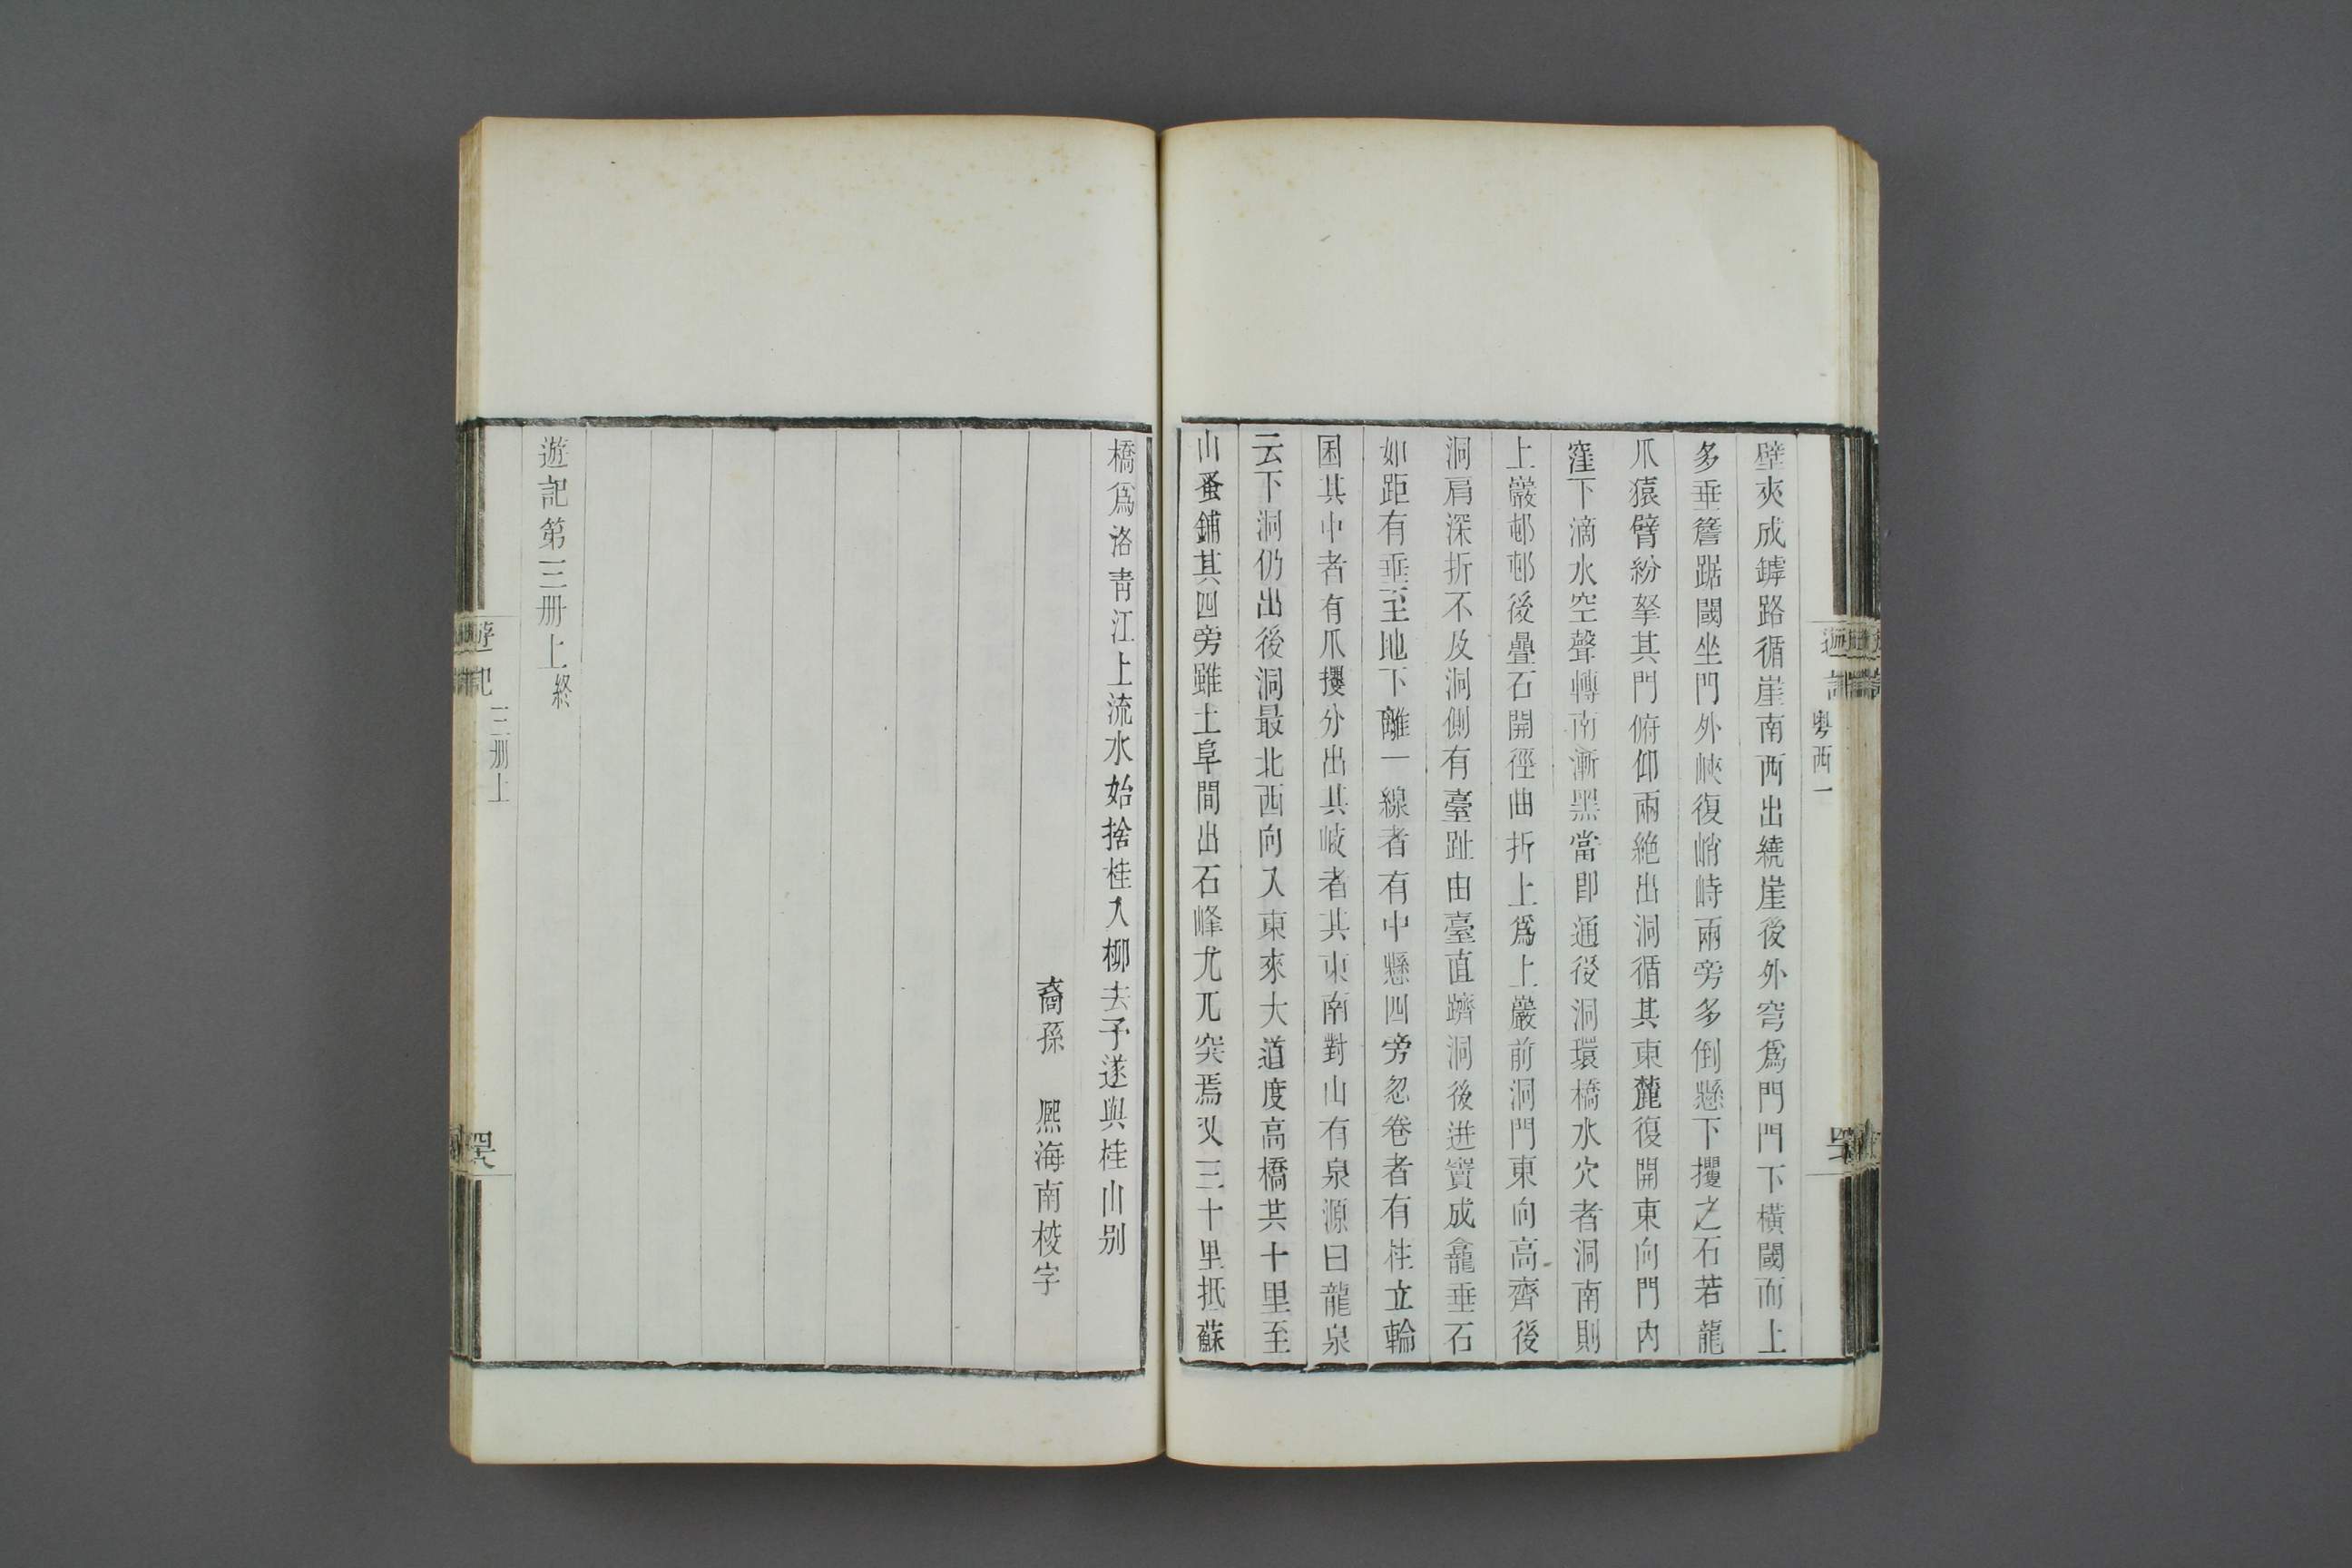 遊記
粵西一
壁夾成罅路循崖南西出繞崖後外穹爲門門下橫閾而上
多垂簷踞閾坐門外峽復峭峙兩旁多倒懸下攫之石若龍
爪猿臂紛拏其門俯仰兩絶出洞循其東麓復開東向門內
窪下滴水空聲轉南漸黑當卽通後洞環橋水穴者洞南則
上巖邨邨後疊石開徑曲折上爲上巖前洞門東向高齊後
洞肩深折不及洞側有臺趾由臺直躋洞後进竇成龕垂石
如距有垂至地下離一線者有中懸四旁忽卷者有柱立輪
囷其中者有爪攫分出其岐者其東南對山有泉源曰龍泉
云下洞仍出後洞最北西向入東來大道度高橋共十里至
山蚤鋪其四旁雖土阜間出石峰尤兀突焉又三十里抵蘇
橋爲洛青江上流水始捨桂入柳去予遂與桂山别
裔孫 熙海南棱字
遊記第三册上終
遊記
三册上